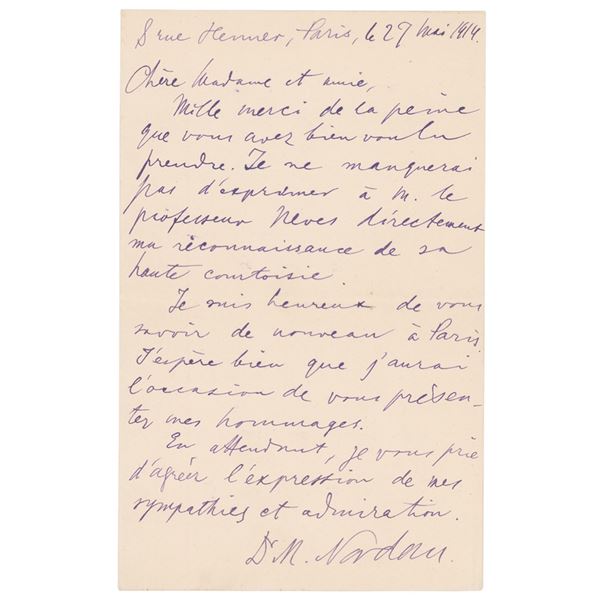 8 rue Henner, Paris, le 27 mai 1914.
Chère Madame et amie,
Mille merci de la peine
que vous avez bien voulu
prendre. Je ne manquerai
pas d'exprimer à M. le
professeur Neves directement
ma réconnaissance de sa
haute courtoisie.
Je suis heureux de vous
savoir de nouveau à Paris.
J'espère bien que j'aurai
l'occasion de vous présen-
ter mes hommages.
En attendant, je vous prie
d'agréer l'expression de mes
sympathies et admiration.
Dr M. Nordau.